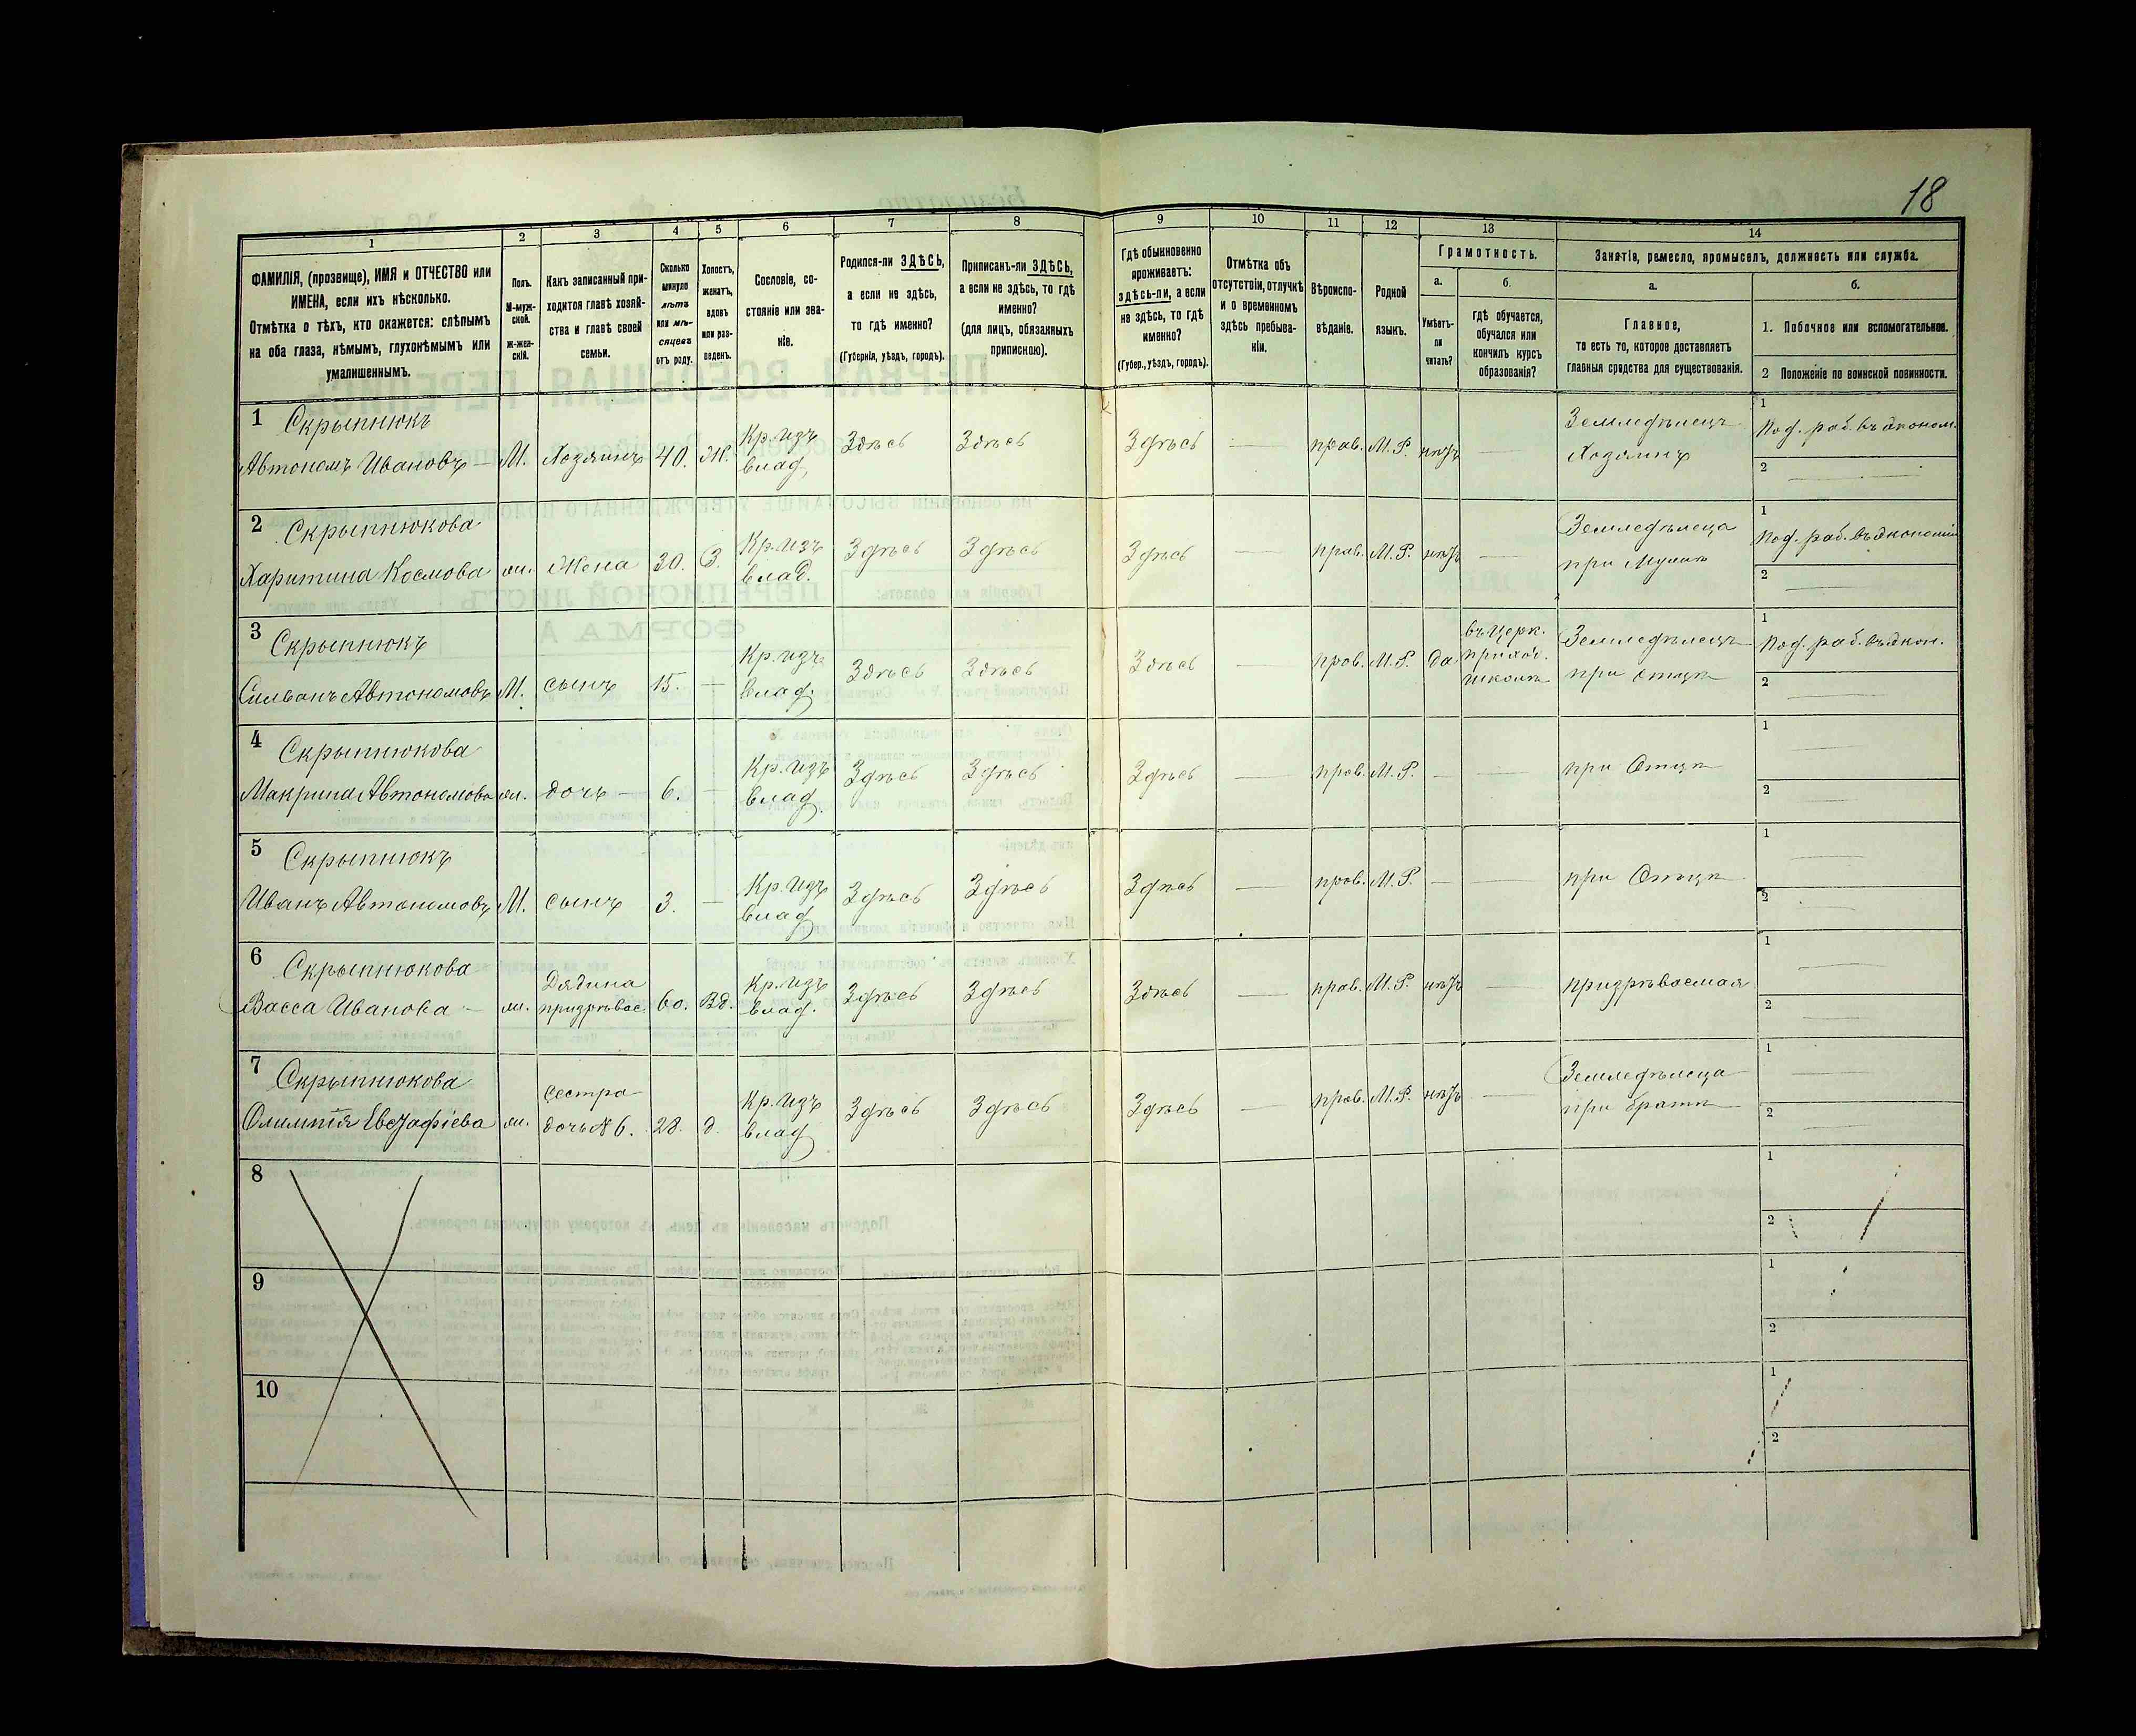 18
1
2
3
4
5
6
7
8
9
10
11
12
13
14
ФАМИЛІЯ, (прозвище), ИМЯ и ОТЧЕСТВО или
ИМЕНА, если ихъ нѣсколько.
Отмѣтка о тѣхъ, кто окажется: слѣпымъ
на оба глаза, нѣмымъ, глухонѣмымъ или
умалишеннымъ.
Полъ.
М-муж-
ской.
Ж-жен-
скій.
Какъ записанный при-
ходится главѣ хозяй-
ства и главѣ своей
семьи.
Сколько
минуло
лѣтъ
или мѣ-
сяцевъ
отъ роду.
Холостъ,
женатъ,
вдовъ
или раз-
веденъ.
Сословіе, со-
стояніе или зва-
ніе.
Родился-ли ЗДѢСЬ,
а если не здѣсь,
то гдѣ именно?
(Губернія, уѣздъ, городъ).
Приписанъ-ли ЗДѢСЬ,
а если не здѣсь, то гдѣ
именно?
(для лицъ, обязанныхъ
припискою).
Гдѣ обыкновенно
проживаетъ:
здѣсь-ли, а если
не здѣсь, то гдѣ
именно?
(Губер., уѣздъ, городъ).
Отмѣтка объ
отсутствіи, отлучкѣ
и о временномъ
здѣсь пребыва-
ніи.
Вѣроиспо-
вѣданіе.
Родной
языкъ.
Грамотность.
а.
Умѣетъ-
ли
читать?
б.
гдѣ обучается,
обучался или
кончилъ курсъ
образованія?
Занятіе, ремесло, промыселъ, должность или служба.
а.
Главное,
то есть то, которое доставляетъ
главныя средства для существованія.
б.
1. Побочное или вспомогательное.
2 Положеніе по воинской повинности.
1 Скрыпнюкъ
Автономъ Ивановъ М. Хозяинъ 40. Ж. Кр. изъ влад. Здѣсь Здѣсь Здѣсь — прав. М.Р. нѣтъ — Земледѣлецъ Хозяинъ 1 Под. раб. въ эконом. 2 —
2 Скрыпнюкова
Харитина Космова ж. Жена 30. З. Кр. изъ влад. Здѣсь Здѣсь Здѣсь — прав. М.Р. нѣтъ — Земледѣлеца при мужѣ 1 Под. раб. въ экономіи 2 —
3 Скрыпнюкъ
Сильванъ Автономовъ М. сынъ 15. — Кр. изъ влад. Здѣсь Здѣсь Здѣсь — прав. М.Р. да въ церк. приход. школѣ Земледѣлецъ при отцѣ 1 Под. раб. въ экон. 2 —
4 Скрыпнюкова
Макрина Автономова ж. дочь 6. — Кр. изъ влад. Здѣсь Здѣсь Здѣсь — прав. М.Р. — — при Отцѣ 1 — 2 —
5 Скрыпнюкъ
Иванъ Автономовъ М. сынъ 3. — Кр. изъ влад Здѣсь Здѣсь Здѣсь — прав. М.Р. — — при Отцѣ 1 — 2 —
6 Скрыпнюкова
Васса Иванова ж. Дядина призрѣвае. 60. Вд. Кр. изъ влад. Здѣсь Здѣсь Здѣсь — прав. М.Р. нѣтъ — призрѣваемая 1 — 2 —
7 Скрыпнюкова
Олимпія Евстафіева ж. Сестра дочь № 6. 28. д. Кр. изъ влад Здѣсь Здѣсь Здѣсь — прав. М.Р. нѣтъ — Земледѣлеца при братѣ 1 — 2 —
8 1 2
9 1 2
10 1 2